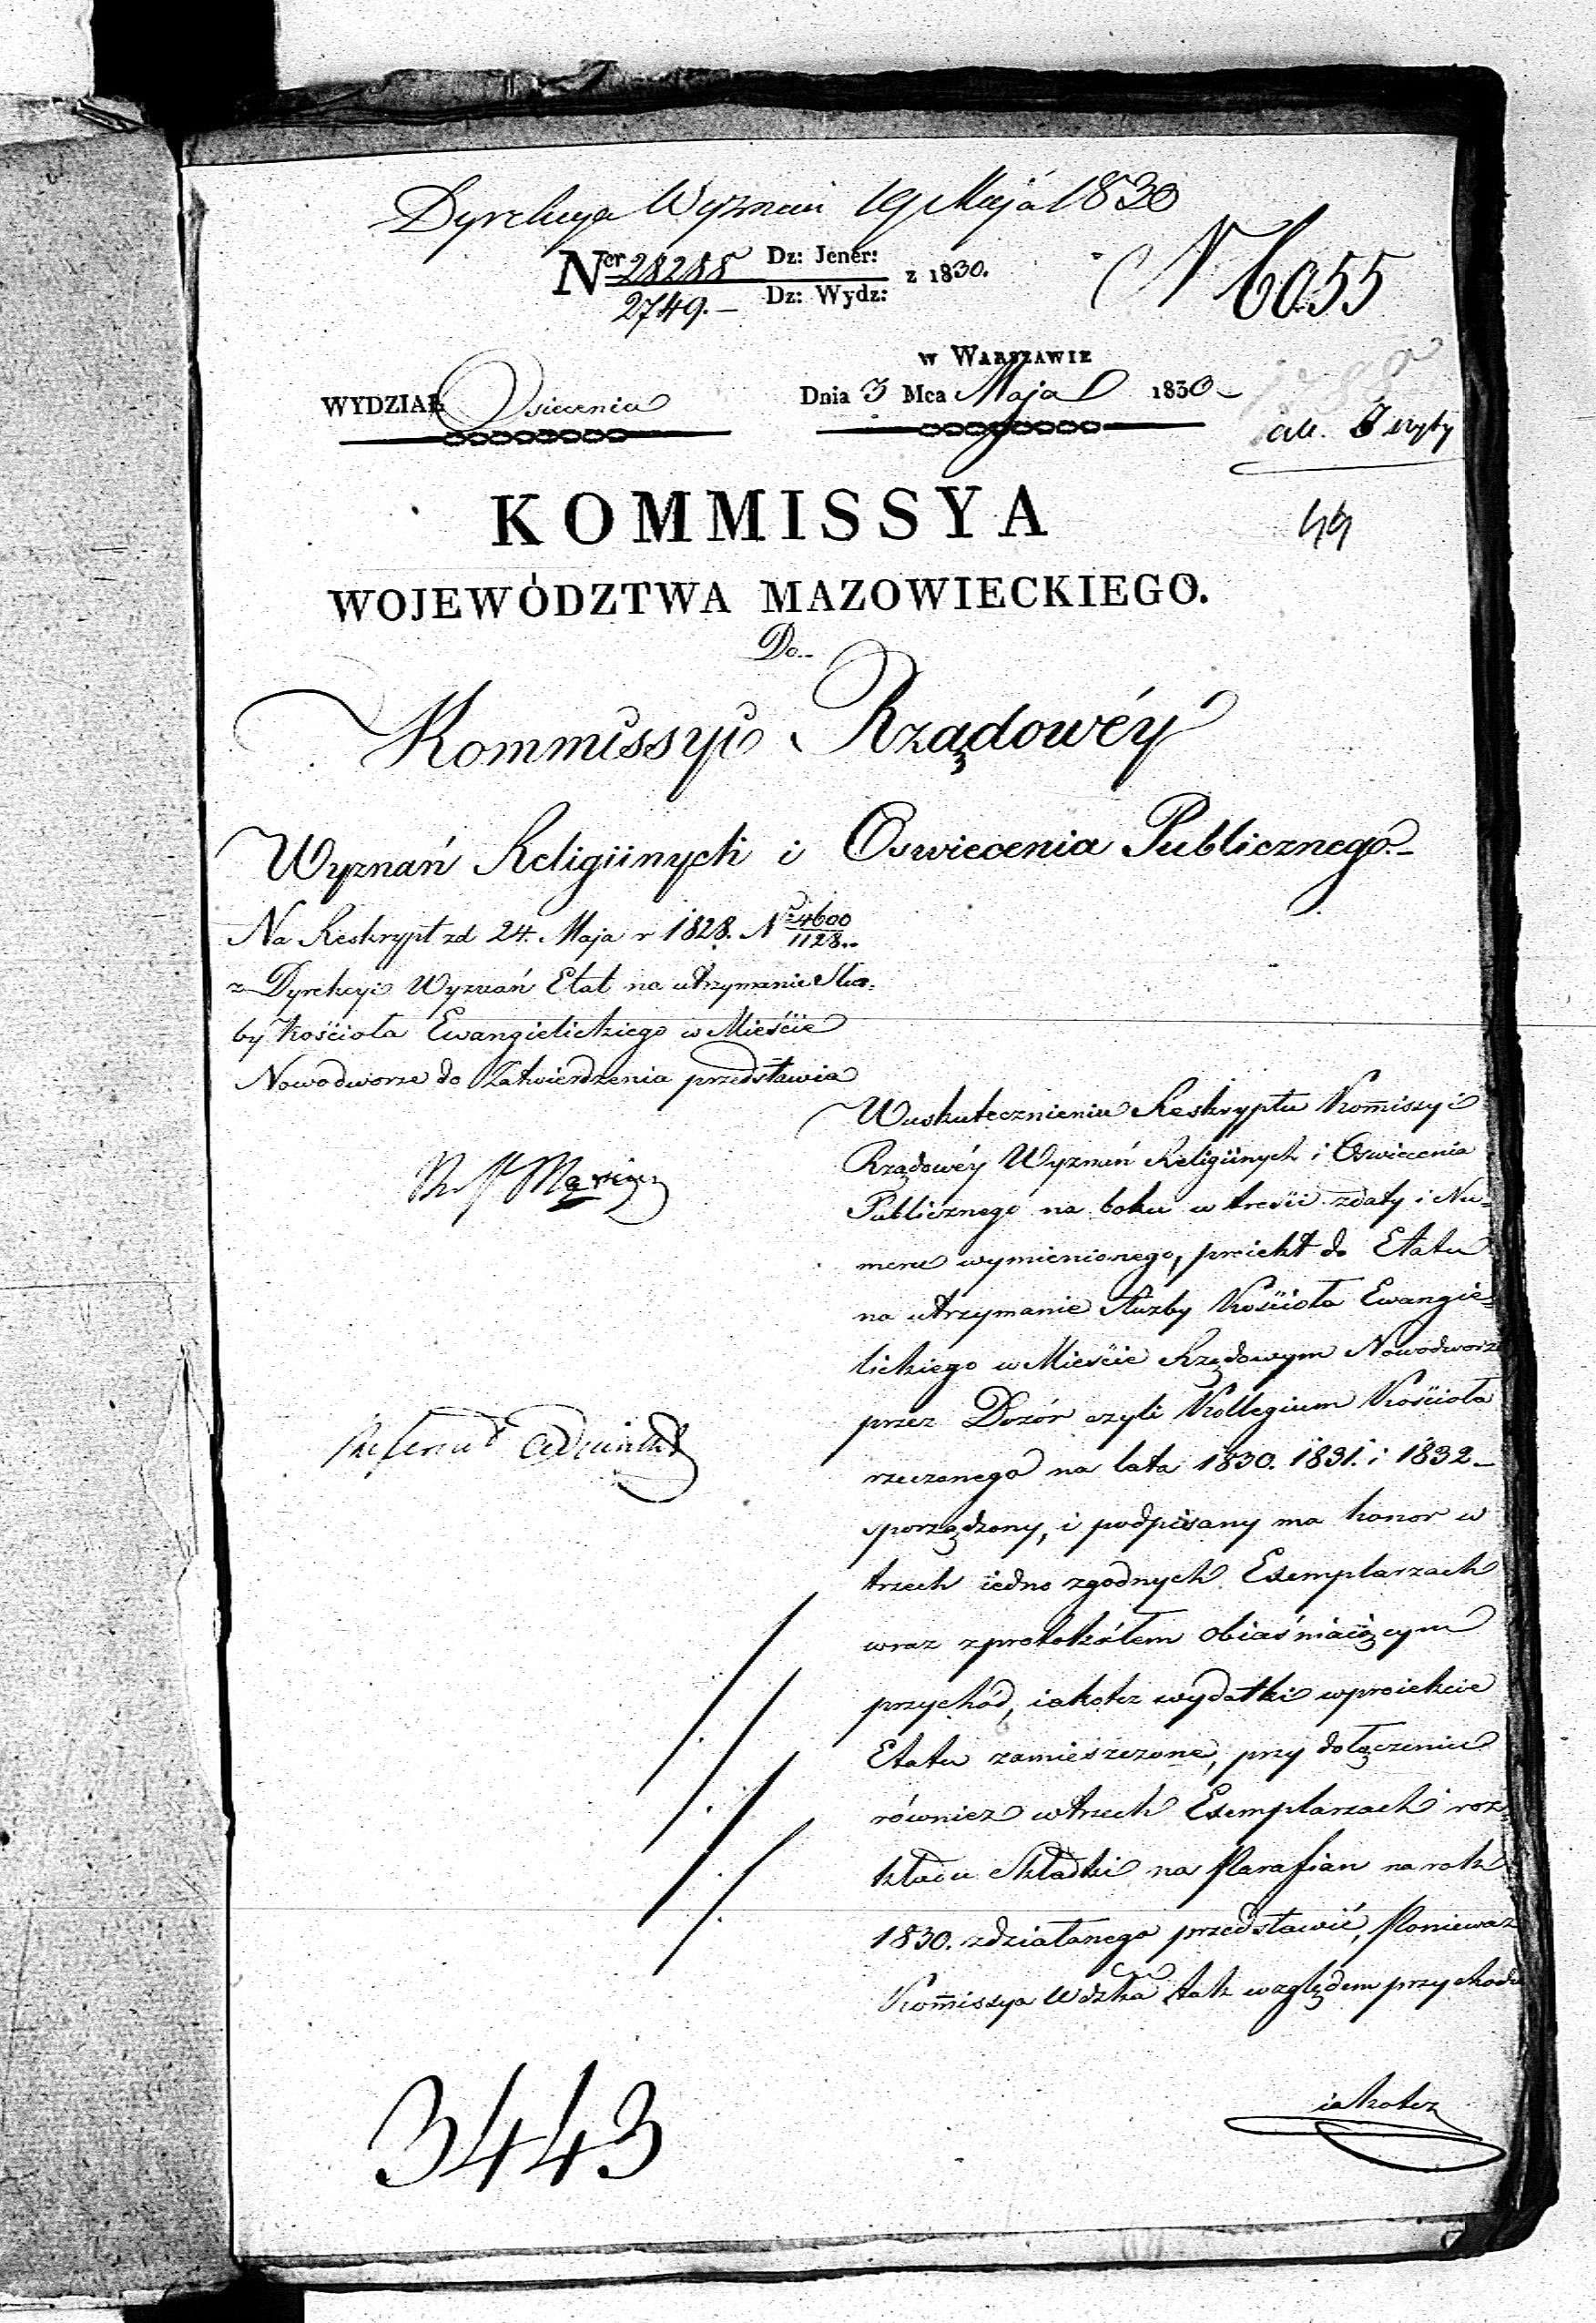 Dyrekcya Wyznań 19 Maja 1830
Ner 28288 Dz: Jener: z 1830.
2749.– Dz: Wydz:
N 6055
w Warszawie
WYDZIAŁ Oswiecenia Dnia 3 Mca Maja 1830
44
KOMMISSYA
WOJEWÓDZTWA MAZOWIECKIEGO.
Do
Kommissyi Rządowéy
Wyznań Religiinych i Oswiecenia Publicznego.–
Na Reskrypt zd 24. Maja r 1828. Nr 4600
1128..
z Dyrekcyi Wyznań Etat na utrzymanie Służ=
by Kościoła Ewangielickiego w Mieście
Nowodworze do Zatwierdzenia przedstawia
Wuskutecznieniu Reskryptu Kom̄issyi
Rządowéy Wyznań Religiinych i Oswiecenia
Publicznego na boku w treści zdaty i Nu=
meru wymienionego, proiekt do Etatu
na utrzymanie Służby Kościoła Ewangie=
lickiego w Mieście Rządowym Nowodworze
przez Dozór czyli Kollegium Kościoła
rzeczonego na lata 1830. 1831. i 1832–
sporządzony, i podpisany ma honor w
trzech iedno zgodnych Exemplarzach
wraz zprotokółem obiaśniaiącym
przychód, iakotez wydatki wproiekcie
Etatu zamieszczone, przy dołączeniu
równiez wtrzech Exemplarzach roz=
kładu Składki na Parafian na rok
1830. zdziałanego przedstawić, Poniewaz
Kom̄issya Wdzka tak względem przychodu
iakotez
3443